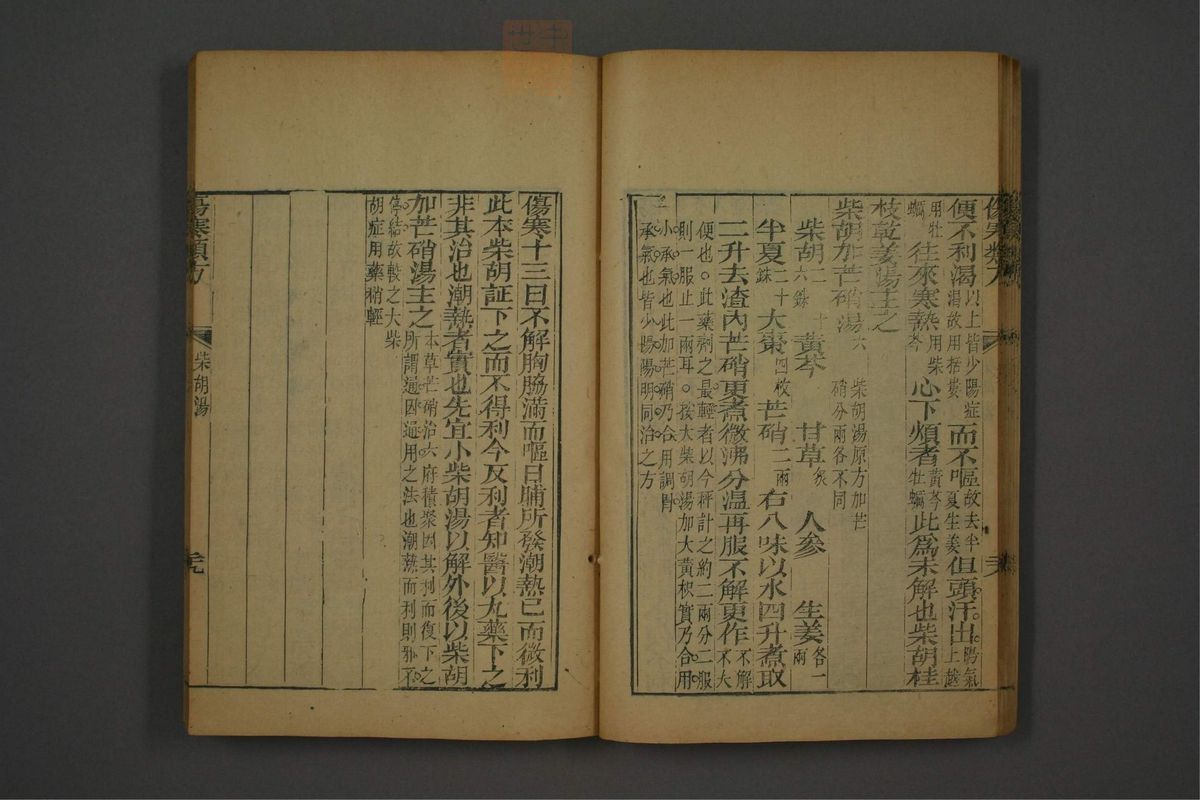 傷寒類方
便不利渴以上皆少陽症渴故用栝蔞而不嘔故去半夏生姜但頭汗出陽氣上越
用牡蠣往來寒熱用柴芩心下煩者黃芩牡蠣此為未解也柴胡桂
枝乾姜湯主之
柴胡加芒硝湯六柴胡湯原方加芒硝分兩各不同
柴胡二十六銖 黃芩 甘草炙 人參 生姜各一兩
半夏二十銖 大棗四枚 芒硝二兩 右八味以水四升煮取
二升去渣內芒硝更煮微沸分溫再服不解更作不解不大
便也。此藥劑之最輕者以今秤計之約二兩分二服
則一服止一兩耳。按大柴胡湯加大黃枳實乃合用
小承氣也此加芒硝乃合用調胃
承氣也皆少陽陽明同治之方
傷寒十三日不解胸脇滿而嘔日晡所發潮熱已而微利
此本柴胡証下之而不得利今反利者知醫以丸藥下之
非其治也潮熱者實也先宜小柴胡湯以解外後以柴胡
加芒硝湯主之本草芒硝治六府積聚因其利而復下之所謂通因通用之法也潮熱而利則邪不
停結故較之大柴
胡症用藥稍輕
傷寒類方 柴胡湯 元